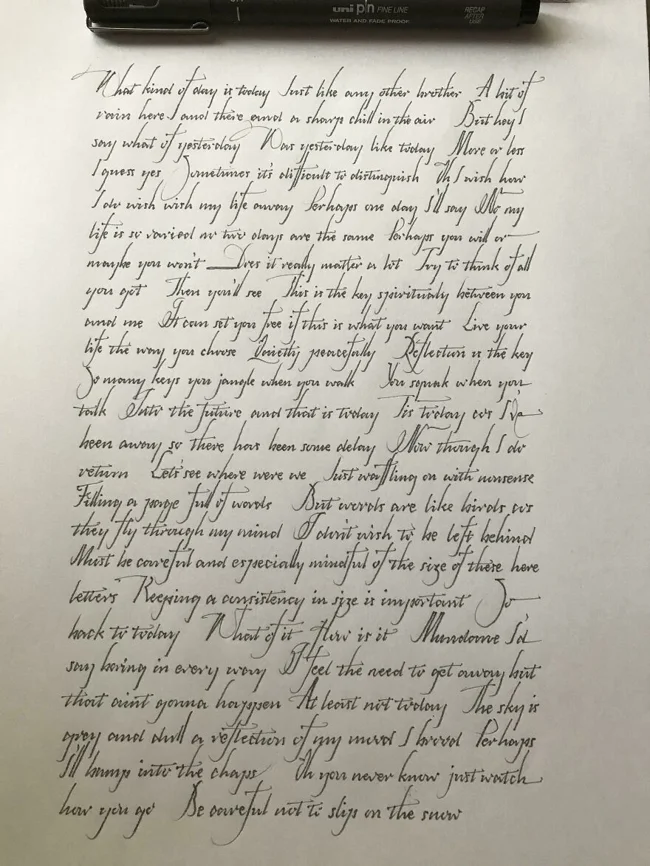 uni pin FINE LINE
WATER AND FADE PROOF
RECAP
AFTER
USE
What kind of day is today Just like any other brother A bit of
rain here and there and a sharp chill in the air But hey I
say what of yesterday Was yesterday like today More or less
I guess yes Sometimes it's difficult to distinguish Oh I wish how
I do wish wish my life away Perhaps one day I'll say No my
life is so varied no two days are the same Perhaps you will or
maybe you won't Does it really matter a lot Try to think of all
you got Then you'll see This is the key spiritually between you
and me It can set you free if this is what you want Live your
life the way you choose Quietly peacefully Reflection is the key
So many keys you jangle when you walk You speak when you
talk Into the future and that is today Tis today as I've
been away so there has been some delay Now though I do
return Let's see where were we Just waffling on with nonsense
Filling a page full of words But words are like birds as
they fly through my mind I don't wish to be left behind
Must be careful and especially mindful of the size of these here
letters Keeping a consistency in size is important So
back to today What of it How is it Mundane I'd
say boring in every way I feel the need to get away but
that aint gonna happen At least not today The sky is
grey and dull a reflection of my mood I brood Perhaps
I'll bump into the chaps Oh you never know just watch
how you go Be careful not to slip on the snow